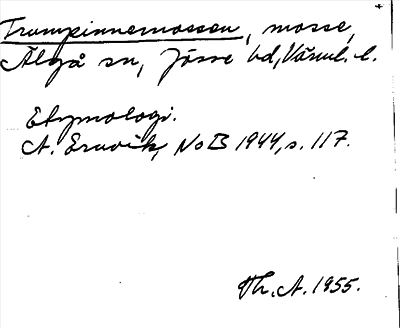 Trumpinnemossen, mosse,
Älgå sn, Jösse hd, Värml. l.
Etymologi.
A. Ernvik, NoB 1944, s. 117.
Th. A. 1955.